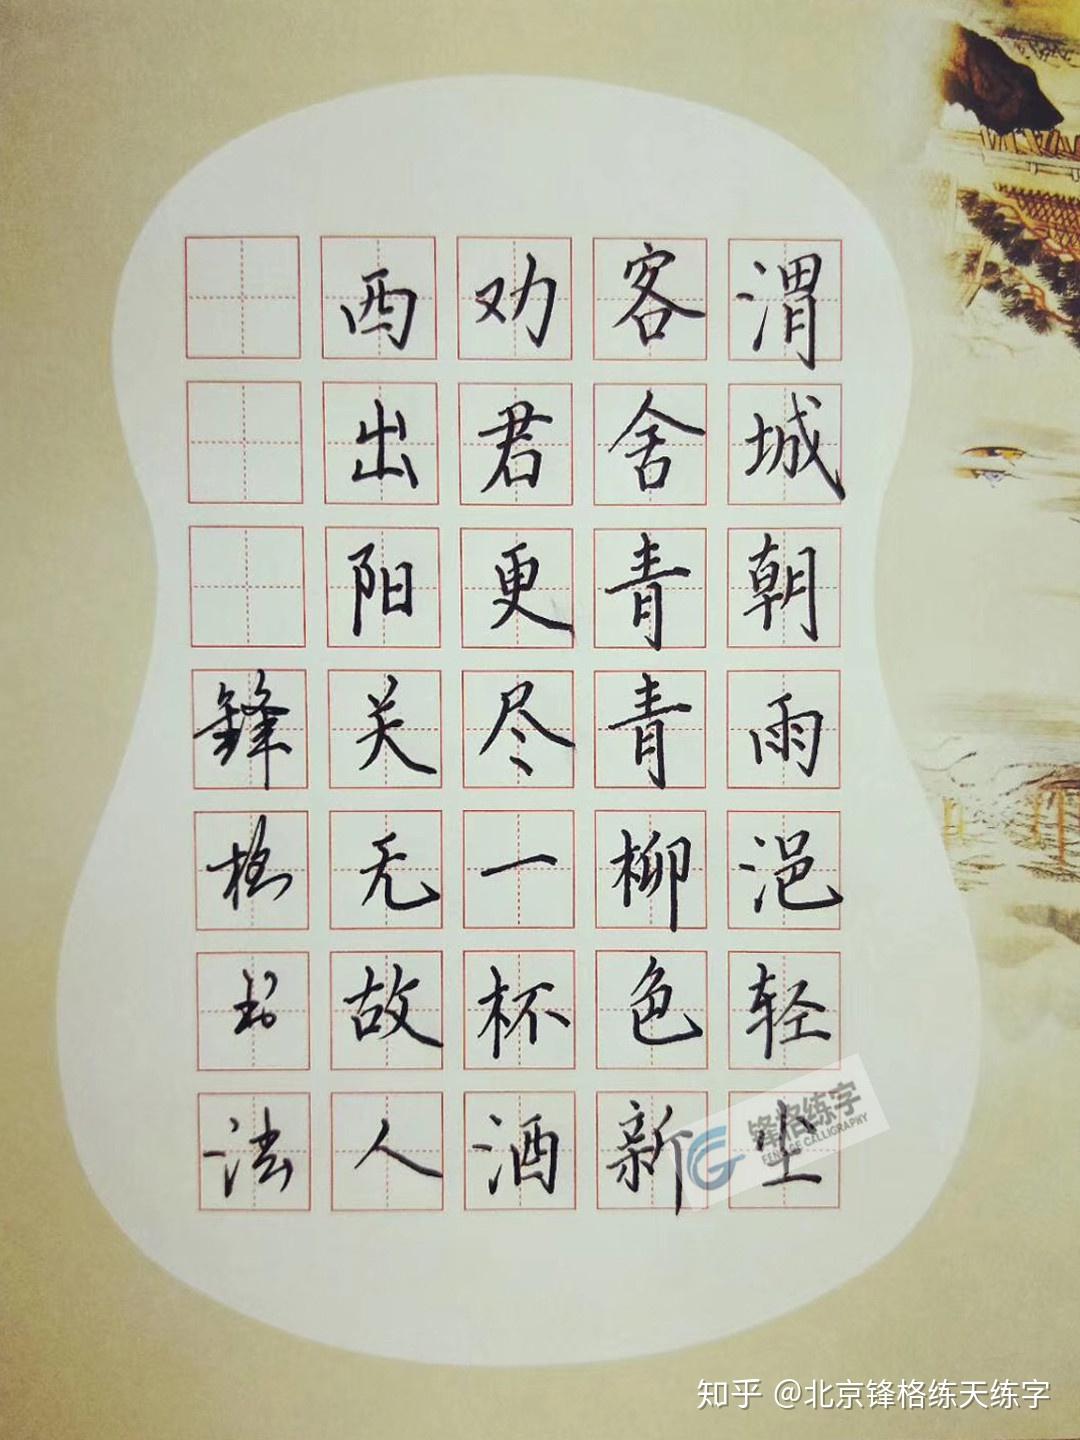 渭城朝雨浥轻尘
客舍青青柳色新
劝君更尽一杯酒
西出阳关无故人
鋒格书法
锋格练字
FENGGE CALLIGRAPHY
知乎 @北京锋格练天练字